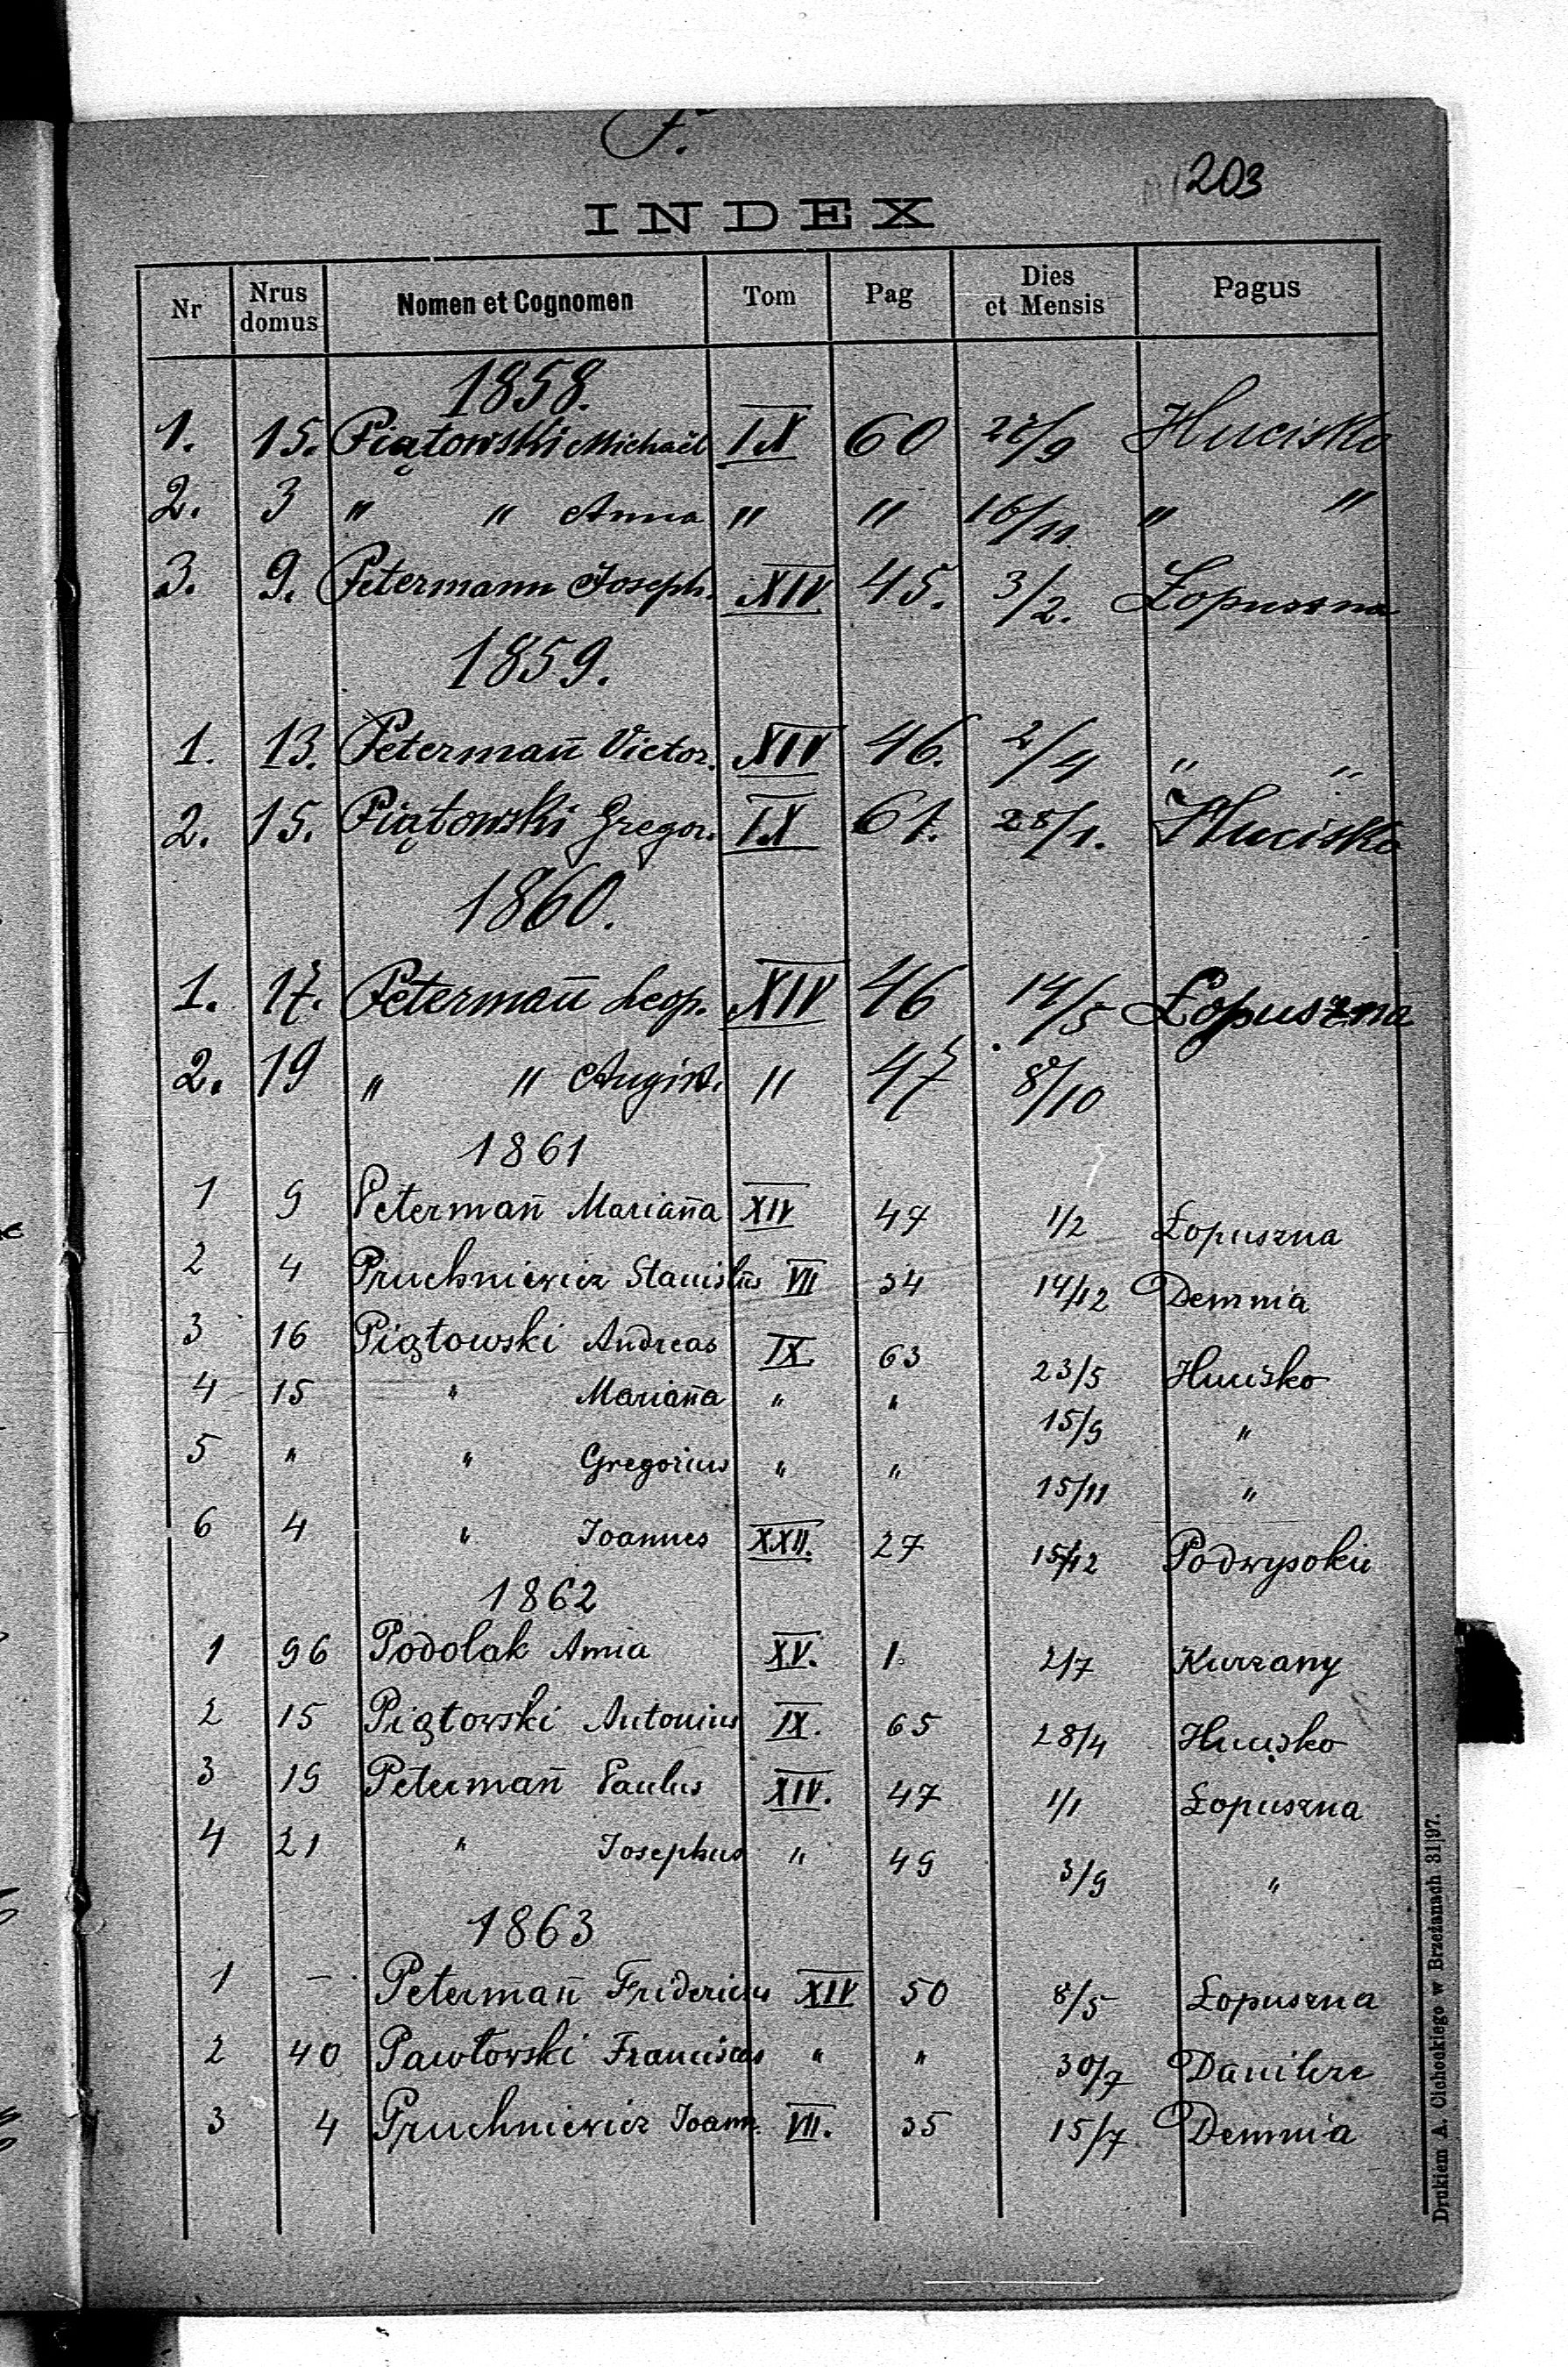 P.
203
INDEX
Nr Nrus domus Nomen et Cognomen Tom Pag Dies et Mensis Pagus
1858.
1. 15. Piątowski Michaël IX 60 /9 Hucisko
2. 3 " " Anna " " 16/11 " "
3. 9. Petermann Joseph. XIV 45. 3/2. Łopuszna
1859.
1. 13. Petermañ Victor. XIV 46. 2/4 " "
2. 15. Piątowski Gregor. IX 61. 28/1. Hucisko
1860.
1. 17. Petermañ Leop. XIV 46 14/5 Łopuszna
2. 19 " " " 47 8/10
1861
1 9 Petermañ Mariaña XIV 47 1/2 Łopuszna
2 4 Pruchniewicz Stanislus VII 34 14/12 Demnia
3 16 Piątowski Andreas IX. 63 23/5 Hucisko
4 15 " Mariaña " " 15/9 "
5 " " Gregorius " " 15/11 "
6 4 " Joannes XXII. 27 15/12 Podwysokie
1862
1 96 Podolak XV. 1. 2/7 Kurzany
2 15 Piątowski Antonius IX. 65 28/4 Hucisko
3 19 Petermañ Paulus XIV. 47 1/1 Łopuszna
4 21 " Josephus " 49 3/9 "
1863
1 — Petermañ Fridericus XIV 50 8/5 Łopuszna
2 40 Pawłowski Franciscus " " 30/7 Danilcze
3 4 Pruchniewicz Joann. VII. 35 15/7 Demnia
Drukiem A. Cichockiego w Brzeżanach 31|97.